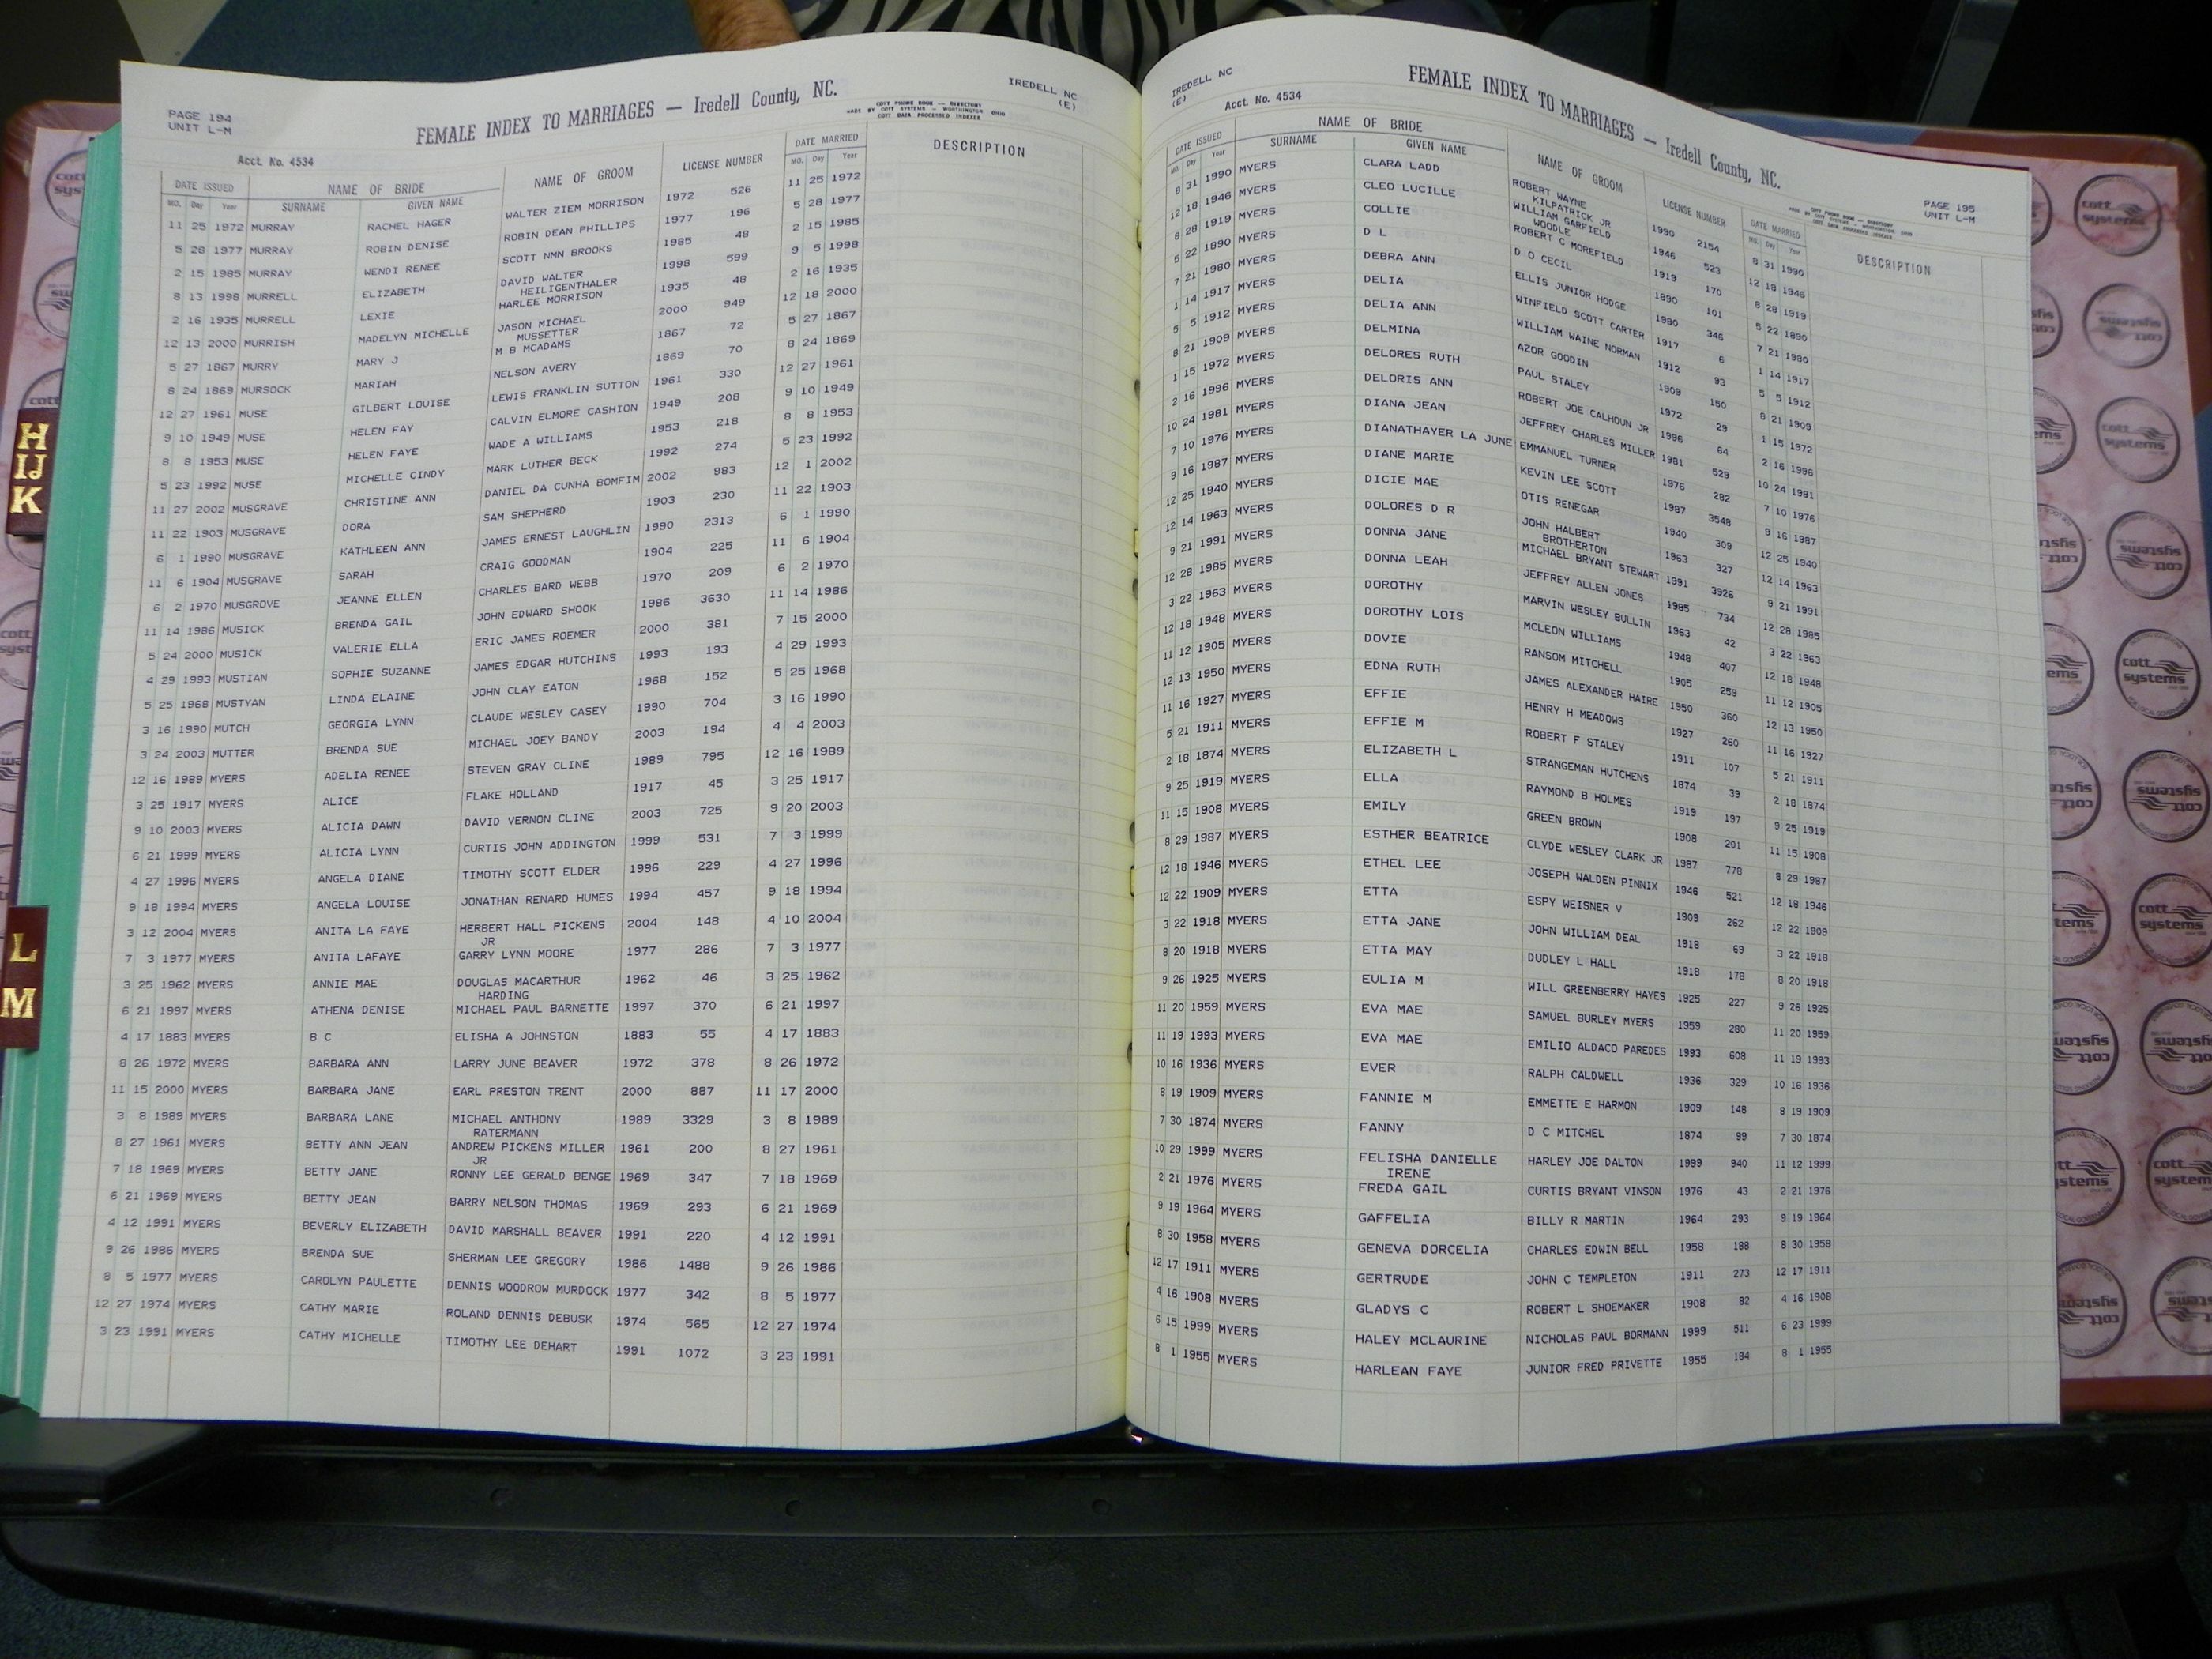 PAGE 194
UNIT L-M
FEMALE INDEX TO MARRIAGES — Iredell County, NC.
IREDELL NC
(E)
COTT PHONE BOOK — DIRECTORY
MADE BY COTT SYSTEMS — WORTHINGTON OHIO
COTT DATA PROCESSED INDEXES
Acct. No. 4534
DATE ISSUED NAME OF BRIDE NAME OF GROOM LICENSE NUMBER DATE MARRIED DESCRIPTION
MO. Day Year SURNAME GIVEN NAME MO. Day Year
11 25 1972 MURRAY RACHEL HAGER WALTER ZIEM MORRISON 1972 526 11 25 1972
5 28 1977 MURRAY ROBIN DENISE ROBIN DEAN PHILLIPS 1977 196 5 28 1977
2 15 1985 MURRAY WENDI RENEE SCOTT NMN BROOKS 1985 48 2 15 1985
8 13 1998 MURRELL ELIZABETH DAVID WALTER 1998 599 9 5 1998
HEILIGENTHALER
2 16 1935 MURRELL LEXIE HARLEE MORRISON 1935 48 2 16 1935
12 13 2000 MURRISH MADELYN MICHELLE JASON MICHAEL 2000 949 12 18 2000
MUSSETTER
5 27 1867 MURRY MARY J M B MCADAMS 1867 72 5 27 1867
8 24 1869 MURSOCK MARIAH NELSON AVERY 1869 70 8 24 1869
12 27 1961 MUSE GILBERT LOUISE LEWIS FRANKLIN SUTTON 1961 330 12 27 1961
9 10 1949 MUSE HELEN FAY CALVIN ELMORE CASHION 1949 208 9 10 1949
8 8 1953 MUSE HELEN FAYE WADE A WILLIAMS 1953 218 8 8 1953
5 23 1992 MUSE MICHELLE CINDY MARK LUTHER BECK 1992 274 5 23 1992
11 27 2002 MUSGRAVE CHRISTINE ANN DANIEL DA CUNHA BOMFIM 2002 983 12 1 2002
11 22 1903 MUSGRAVE DORA SAM SHEPHERD 1903 230 11 22 1903
6 1 1990 MUSGRAVE KATHLEEN ANN JAMES ERNEST LAUGHLIN 1990 2313 6 1 1990
11 6 1904 MUSGRAVE SARAH CRAIG GOODMAN 1904 225 11 6 1904
6 2 1970 MUSGROVE JEANNE ELLEN CHARLES BARD WEBB 1970 209 6 2 1970
11 14 1986 MUSICK BRENDA GAIL JOHN EDWARD SHOOK 1986 3630 11 14 1986
5 24 2000 MUSICK VALERIE ELLA ERIC JAMES ROEMER 2000 381 7 15 2000
4 29 1993 MUSTIAN SOPHIE SUZANNE JAMES EDGAR HUTCHINS 1993 193 4 29 1993
5 25 1968 MUSTYAN LINDA ELAINE JOHN CLAY EATON 1968 152 5 25 1968
3 16 1990 MUTCH GEORGIA LYNN CLAUDE WESLEY CASEY 1990 704 3 16 1990
3 24 2003 MUTTER BRENDA SUE MICHAEL JOEY BANDY 2003 194 4 4 2003
12 16 1989 MYERS ADELIA RENEE STEVEN GRAY CLINE 1989 795 12 16 1989
3 25 1917 MYERS ALICE FLAKE HOLLAND 1917 45 3 25 1917
9 10 2003 MYERS ALICIA DAWN DAVID VERNON CLINE 2003 725 9 20 2003
6 21 1999 MYERS ALICIA LYNN CURTIS JOHN ADDINGTON 1999 531 7 3 1999
4 27 1996 MYERS ANGELA DIANE TIMOTHY SCOTT ELDER 1996 229 4 27 1996
9 18 1994 MYERS ANGELA LOUISE JONATHAN RENARD HUMES 1994 457 9 18 1994
3 12 2004 MYERS ANITA LA FAYE HERBERT HALL PICKENS 2004 148 4 10 2004
JR
7 3 1977 MYERS ANITA LAFAYE GARRY LYNN MOORE 1977 286 7 3 1977
3 25 1962 MYERS ANNIE MAE DOUGLAS MACARTHUR 1962 46 3 25 1962
HARDING
6 21 1997 MYERS ATHENA DENISE MICHAEL PAUL BARNETTE 1997 370 6 21 1997
4 17 1883 MYERS B C ELISHA A JOHNSTON 1883 55 4 17 1883
8 26 1972 MYERS BARBARA ANN LARRY JUNE BEAVER 1972 378 8 26 1972
11 15 2000 MYERS BARBARA JANE EARL PRESTON TRENT 2000 887 11 17 2000
3 8 1989 MYERS BARBARA LANE MICHAEL ANTHONY 1989 3329 3 8 1989
RATERMANN
8 27 1961 MYERS BETTY ANN JEAN ANDREW PICKENS MILLER 1961 200 8 27 1961
JR
7 18 1969 MYERS BETTY JANE RONNY LEE GERALD BENGE 1969 347 7 18 1969
6 21 1969 MYERS BETTY JEAN BARRY NELSON THOMAS 1969 293 6 21 1969
4 12 1991 MYERS BEVERLY ELIZABETH DAVID MARSHALL BEAVER 1991 220 4 12 1991
9 26 1986 MYERS BRENDA SUE SHERMAN LEE GREGORY 1986 1488 9 26 1986
8 5 1977 MYERS CAROLYN PAULETTE DENNIS WOODROW MURDOCK 1977 342 8 5 1977
12 27 1974 MYERS CATHY MARIE ROLAND DENNIS DEBUSK 1974 565 12 27 1974
3 23 1991 MYERS CATHY MICHELLE TIMOTHY LEE DEHART 1991 1072 3 23 1991
IREDELL NC
(E)
Acct. No. 4534
FEMALE INDEX TO MARRIAGES — Iredell County, NC.
PAGE 195
UNIT L-M
COTT PHONE BOOK — DIRECTORY
MADE BY COTT SYSTEMS — WORTHINGTON OHIO
COTT DATA PROCESSED INDEXES
DATE ISSUED NAME OF BRIDE NAME OF GROOM LICENSE NUMBER DATE MARRIED DESCRIPTION
MO. Day Year SURNAME GIVEN NAME MO. Day Year
8 31 1990 MYERS CLARA LADD ROBERT WAYNE 1990 2154 8 31 1990
KILPATRICK JR
12 18 1946 MYERS CLEO LUCILLE WILLIAM GARFIELD 1946 523 12 18 1946
WOODLE
8 28 1919 MYERS COLLIE ROBERT C MOREFIELD 1919 170 8 28 1919
5 22 1890 MYERS D L D O CECIL 1890 101 5 22 1890
7 21 1980 MYERS DEBRA ANN ELLIS JUNIOR HODGE 1980 346 7 21 1980
1 14 1917 MYERS DELIA WINFIELD SCOTT CARTER 1917 6 1 14 1917
5 5 1912 MYERS DELIA ANN WILLIAM WAINE NORMAN 1912 93 5 5 1912
8 21 1909 MYERS DELMINA AZOR GOODIN 1909 150 8 21 1909
1 15 1972 MYERS DELORES RUTH PAUL STALEY 1972 29 1 15 1972
2 16 1996 MYERS DELORIS ANN ROBERT JOE CALHOUN JR 1996 64 2 16 1996
10 24 1981 MYERS DIANA JEAN JEFFREY CHARLES MILLER 1981 529 10 24 1981
7 10 1976 MYERS DIANATHAYER LA JUNE EMMANUEL TURNER 1976 282 7 10 1976
9 16 1987 MYERS DIANE MARIE KEVIN LEE SCOTT 1987 3548 9 16 1987
12 25 1940 MYERS DICIE MAE OTIS RENEGAR 1940 309 12 25 1940
12 14 1963 MYERS DOLORES D R JOHN HALBERT 1963 327 12 14 1963
BROTHERTON
9 21 1991 MYERS DONNA JANE MICHAEL BRYANT STEWART 1991 3926 9 21 1991
12 28 1985 MYERS DONNA LEAH JEFFREY ALLEN JONES 1985 734 12 28 1985
3 22 1963 MYERS DOROTHY MARVIN WESLEY BULLIN 1963 42 3 22 1963
12 18 1948 MYERS DOROTHY LOIS MCLEON WILLIAMS 1948 407 12 18 1948
11 12 1905 MYERS DOVIE RANSOM MITCHELL 1905 259 11 12 1905
12 13 1950 MYERS EDNA RUTH JAMES ALEXANDER HAIRE 1950 360 12 13 1950
11 16 1927 MYERS EFFIE HENRY H MEADOWS 1927 260 11 16 1927
5 21 1911 MYERS EFFIE M ROBERT F STALEY 1911 107 5 21 1911
2 18 1874 MYERS ELIZABETH L STRANGEMAN HUTCHENS 1874 39 2 18 1874
9 25 1919 MYERS ELLA RAYMOND B HOLMES 1919 197 9 25 1919
11 15 1908 MYERS EMILY GREEN BROWN 1908 201 11 15 1908
8 29 1987 MYERS ESTHER BEATRICE CLYDE WESLEY CLARK JR 1987 778 8 29 1987
12 18 1946 MYERS ETHEL LEE JOSEPH WALDEN PINNIX 1946 521 12 18 1946
12 22 1909 MYERS ETTA ESPY WEISNER V 1909 262 12 22 1909
3 22 1918 MYERS ETTA JANE JOHN WILLIAM DEAL 1918 69 3 22 1918
8 20 1918 MYERS ETTA MAY DUDLEY L HALL 1918 178 8 20 1918
9 26 1925 MYERS EULIA M WILL GREENBERRY HAYES 1925 227 9 26 1925
11 20 1959 MYERS EVA MAE SAMUEL BURLEY MYERS 1959 280 11 20 1959
11 19 1993 MYERS EVA MAE EMILIO ALDACO PAREDES 1993 608 11 19 1993
10 16 1936 MYERS EVER RALPH CALDWELL 1936 329 10 16 1936
8 19 1909 MYERS FANNIE M EMMETTE E HARMON 1909 148 8 19 1909
7 30 1874 MYERS FANNY D C MITCHEL 1874 99 7 30 1874
10 29 1999 MYERS FELISHA DANIELLE HARLEY JOE DALTON 1999 940 11 12 1999
IRENE
2 21 1976 MYERS FREDA GAIL CURTIS BRYANT VINSON 1976 43 2 21 1976
9 19 1964 MYERS GAFFELIA BILLY R MARTIN 1964 293 9 19 1964
8 30 1958 MYERS GENEVA DORCELIA CHARLES EDWIN BELL 1958 188 8 30 1958
12 17 1911 MYERS GERTRUDE JOHN C TEMPLETON 1911 273 12 17 1911
4 16 1908 MYERS GLADYS C ROBERT L SHOEMAKER 1908 82 4 16 1908
6 15 1999 MYERS HALEY MCLAURINE NICHOLAS PAUL BORMANN 1999 511 6 23 1999
8 1 1955 MYERS HARLEAN FAYE JUNIOR FRED PRIVETTE 1955 184 8 1 1955
H
IJ
K
L
M
cott
systems